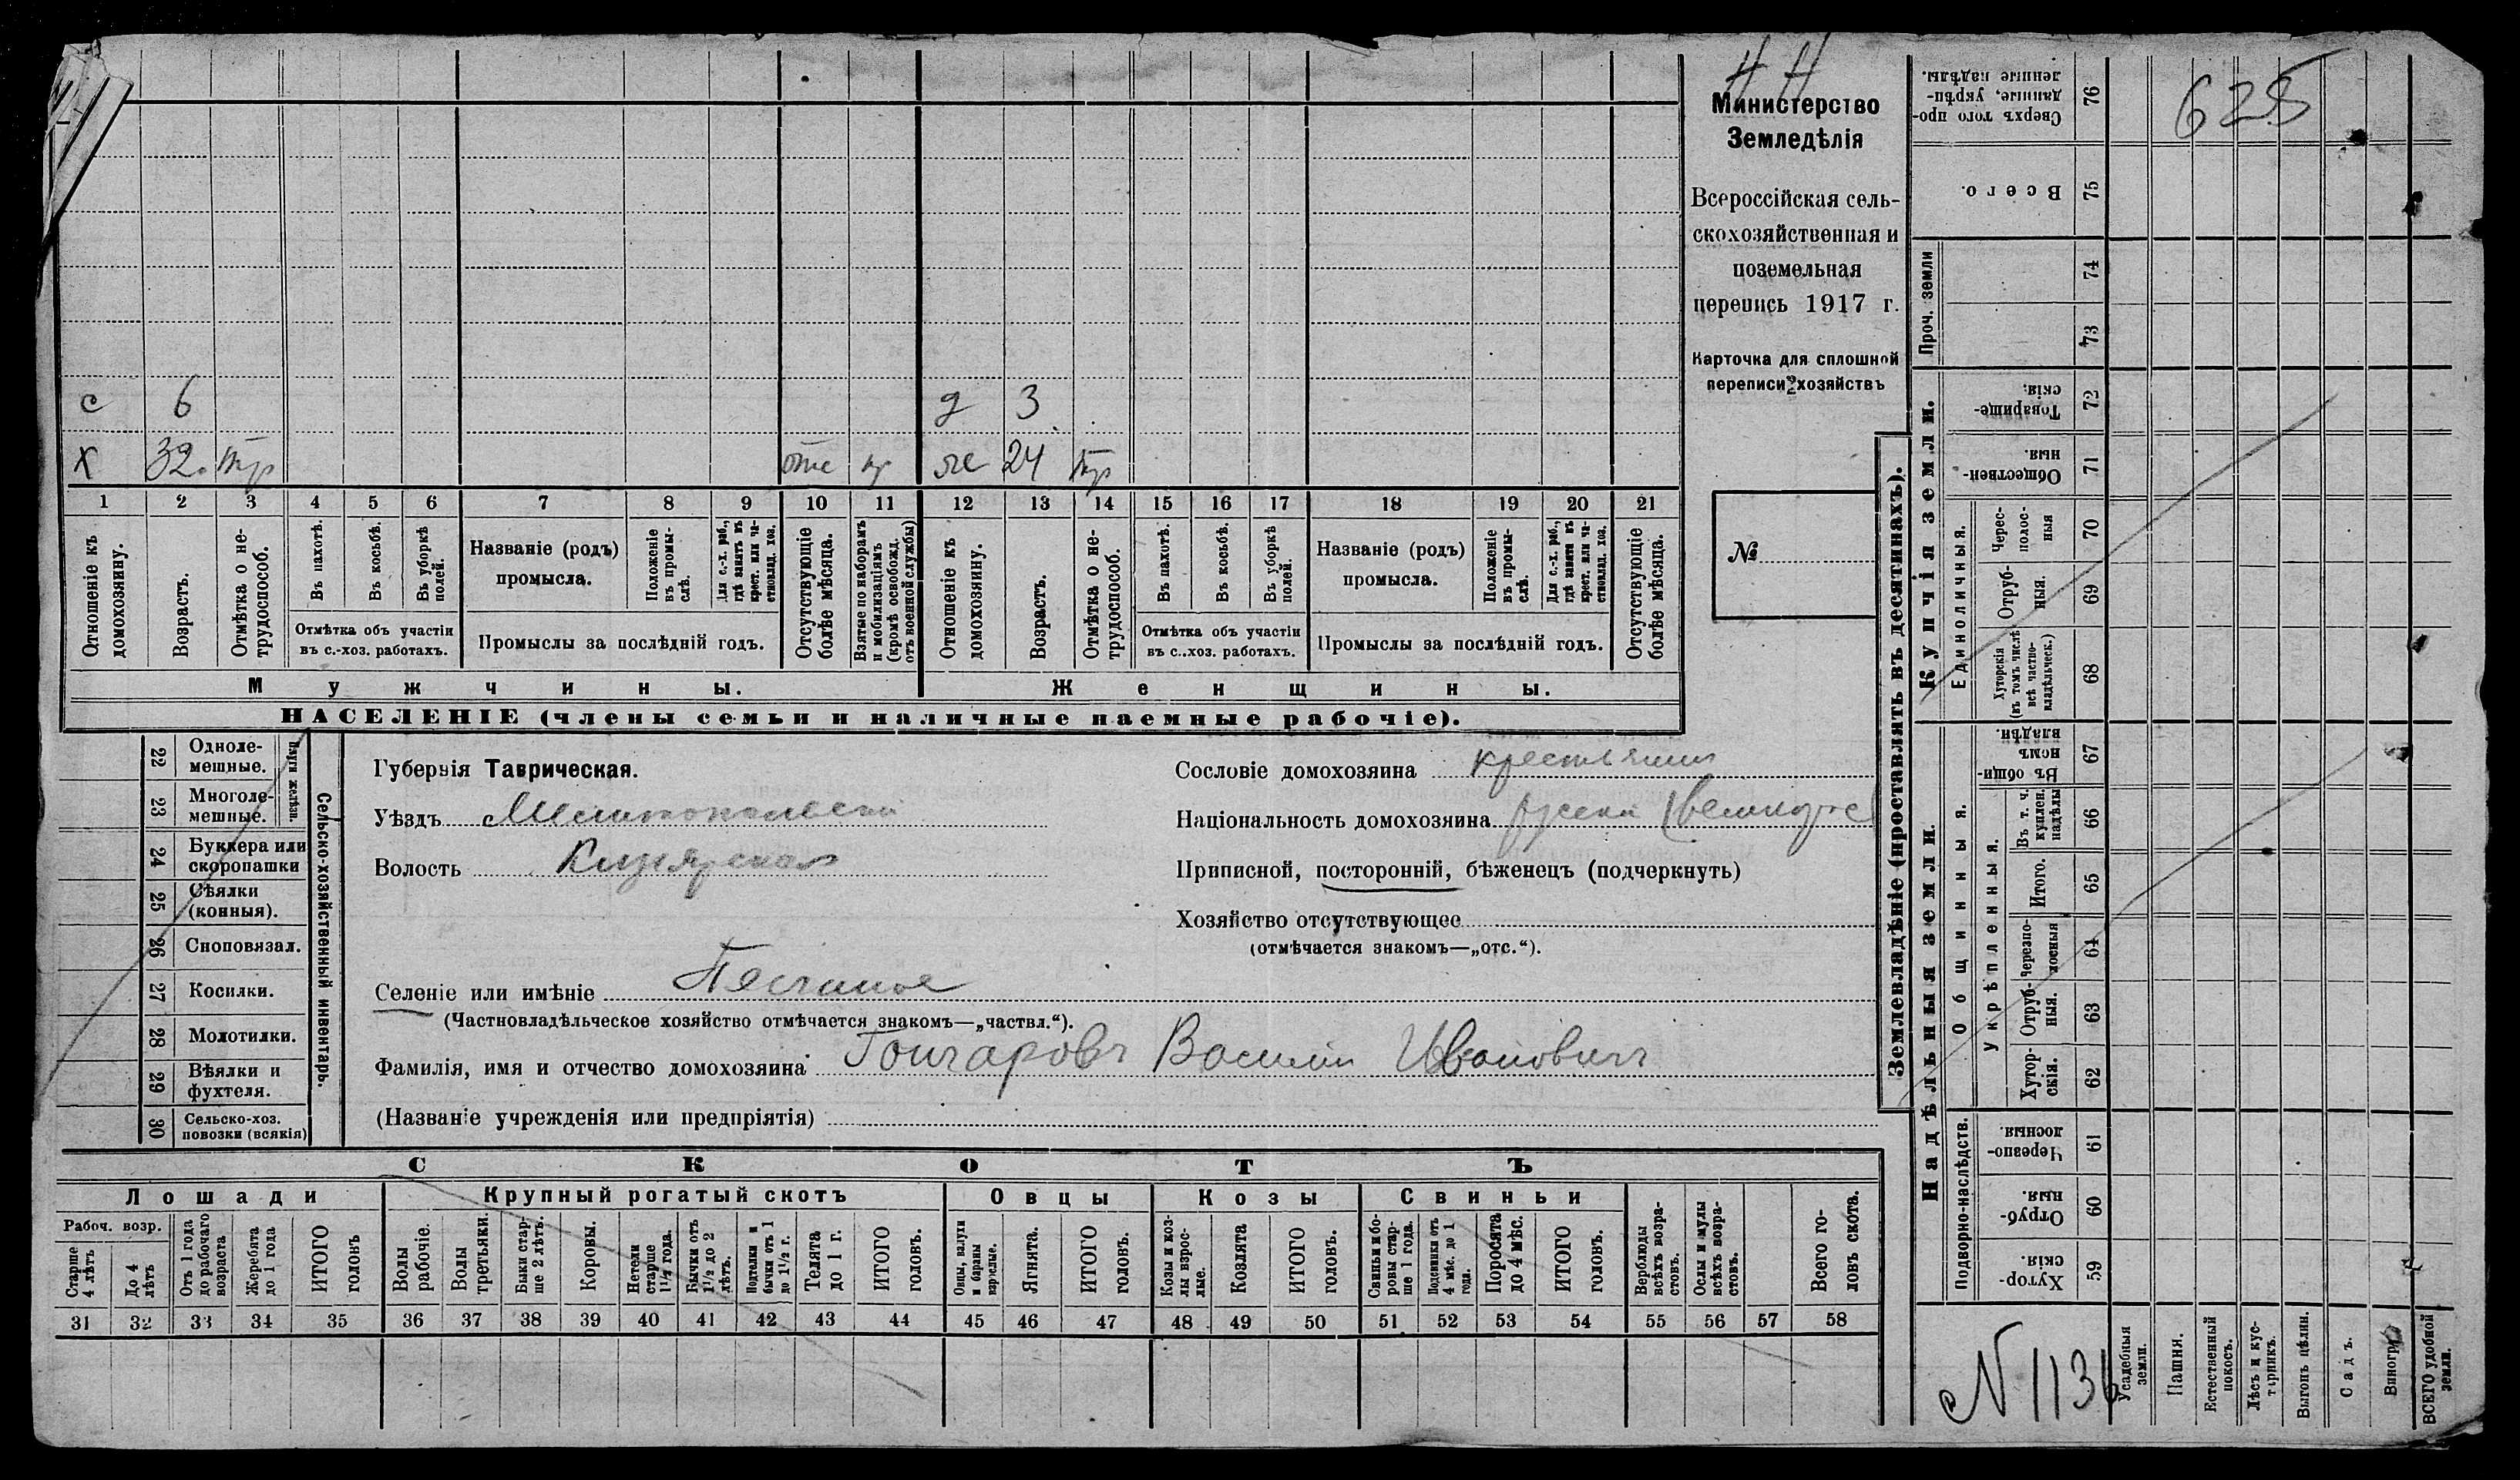 Н Н
Министерство
Земледѣлія
Всероссійская сель-
скохозяйственная и
поземельная
перепись 1917 г.
Карточка для сплошной
переписи хозяйствъ
2
№
625
с 6 д 3
Х 32 тр отс жс 24 тр
1 2 3 4 5 6 7 8 9 10 11 12 13 14 15 16 17 18 19 20 21
Отношеніе къ
домохозяину.
Возрастъ.
Отмѣтка о не-
трудоспособ.
Въ пахотѣ.
Въ косьбѣ.
Въ уборкѣ
полей.
Отмѣтка объ участіи
въ с.-хоз. работахъ.
Названіе (родъ)
промысла.
Положеніе
въ промы-
слѣ.
Для с.-х. раб.,
гдѣ занятъ въ
крест. или ча-
стновлад. хоз.
Промыслы за послѣдній годъ.
Отсутствующіе
болѣе мѣсяца.
Взятые по наборамъ
и мобилизаціямъ
(кромѣ освобожд.
отъ военной службы)
Отношеніе къ
домохозяину.
Возрастъ.
Отмѣтка о не-
трудоспособ.
Въ пахотѣ.
Въ косьбѣ.
Въ уборкѣ
полей.
Отмѣтка объ участіи
въ с..хоз. работахъ.
Названіе (родъ)
промысла.
Положеніе
въ промы-
слѣ.
Для с.-х. раб.,
гдѣ заняти въ
крест. или ча-
стновлад. хоз.
Промыслы за послѣдній годъ.
Отсутствующіе
болѣе мѣсяца.
Мужчины.
Женщины.
НАСЕЛЕНІЕ (члены семьи и наличные наемные рабочіе).
Сельско-хозяйственный инвентарь.
Плуги желѣзн.
22 Одноле-
мешные.
23 Многоле-
мешные.
24 Буккера или
скоропашки
25 Сѣялки
(конныя).
26 Сноповязал.
27 Косилки.
28 Молотилки.
29 Вѣялки и
фухтеля.
30 Сельско-хоз.
повозки (всякія)
Губернія Таврическая.
Уѣздъ Мелитопольскій
Волость Кизіярская
Селеніе или имѣніе Песчаное
(Частновладѣльческое хозяйство отмѣчается знакомъ—„частвл.“).
Фамилія, имя и отчество домохозяина Гончаровъ Василій Ивановичъ
(Названіе учрежденія или предпріятія)
Сословіе домохозяина крестьянин
Національность домохозяина русскій
Приписной, посторонній, бѣженецъ (подчеркнуть)
Хозяйство отсутствующее
(отмѣчается знакомъ—„отс.“).
СКОТЪ
Лошади
Рабоч. возр.
Старше
4 лѣтъ
До 4
лѣтъ
Отъ 1 года
до рабочаго
возраста
Жеребята
до 1 года
ИТОГО
головъ
Крупный рогатый скотъ
Волы
рабочіе.
Волы
третьяки.
Быки стар-
ше 2 лѣтъ.
Коровы.
Нетели
старше
1½ года.
Бычки отъ
1½ до 2
лѣтъ.
Подтелки и
бычки отъ 1
до 1½ г.
Телята
до 1 г.
ИТОГО
головъ.
Овцы
Овцы, валухи
и бараны
взрослые.
Ягнята.
ИТОГО
головъ.
Козы
Козы и коз-
лы взрос-
лые.
Козлята
ИТОГО
головъ.
Свиньи
Свиньи и бо-
ровы стар-
ше 1 года.
Подсвинки отъ
4 мѣс. до 1
года.
Поросята
до 4 мѣс.
ИТОГО
головъ.
Верблюды
всѣхъ возра-
стовъ.
Ослы и мулы
всѣхъ возра-
стовъ.
Всего го-
ловъ скота.
31 32 33 34 35 36 37 38 39 40 41 42 43 44 45 46 47 48 49 50 51 52 53 54 55 56 57 58
Землевладѣніе (проставлять въ десятинахъ).
Купчія земли.
Надѣльныя земли.
Сверхъ того про-
данные, укрѣп-
ленные надѣлы.
76
Всего.
75
Проч. земли
74
73
Товарище-
скія.
72
Обществен-
ныя.
71
Единоличныя.
Черес-
полос-
ныя
70
Отруб-
ныя.
69
Хуторскія
(въ томъ числѣ
всѣ частно-
владѣльческ.)
68
Общинныя.
Въ общи-
номъ
владѣн.
67
Укрѣпленныя.
Въ т. ч.
куплен.
надѣлы
66
Итого.
65
Черезпо-
лосныя
64
Отруб-
ныя.
63
Хутор-
скія.
62
Подворно-наслѣдств.
Черезпо-
лосныя.
61
Отруб-
ныя.
60
Хутор-
скія.
59
Усадебныя
земли.
Пашня.
Естественный
покосъ.
Лѣсъ и кус-
тарникъ.
Выгонъ цѣлин.
Садъ.
Виногр
ВСЕГО удобной
земли.